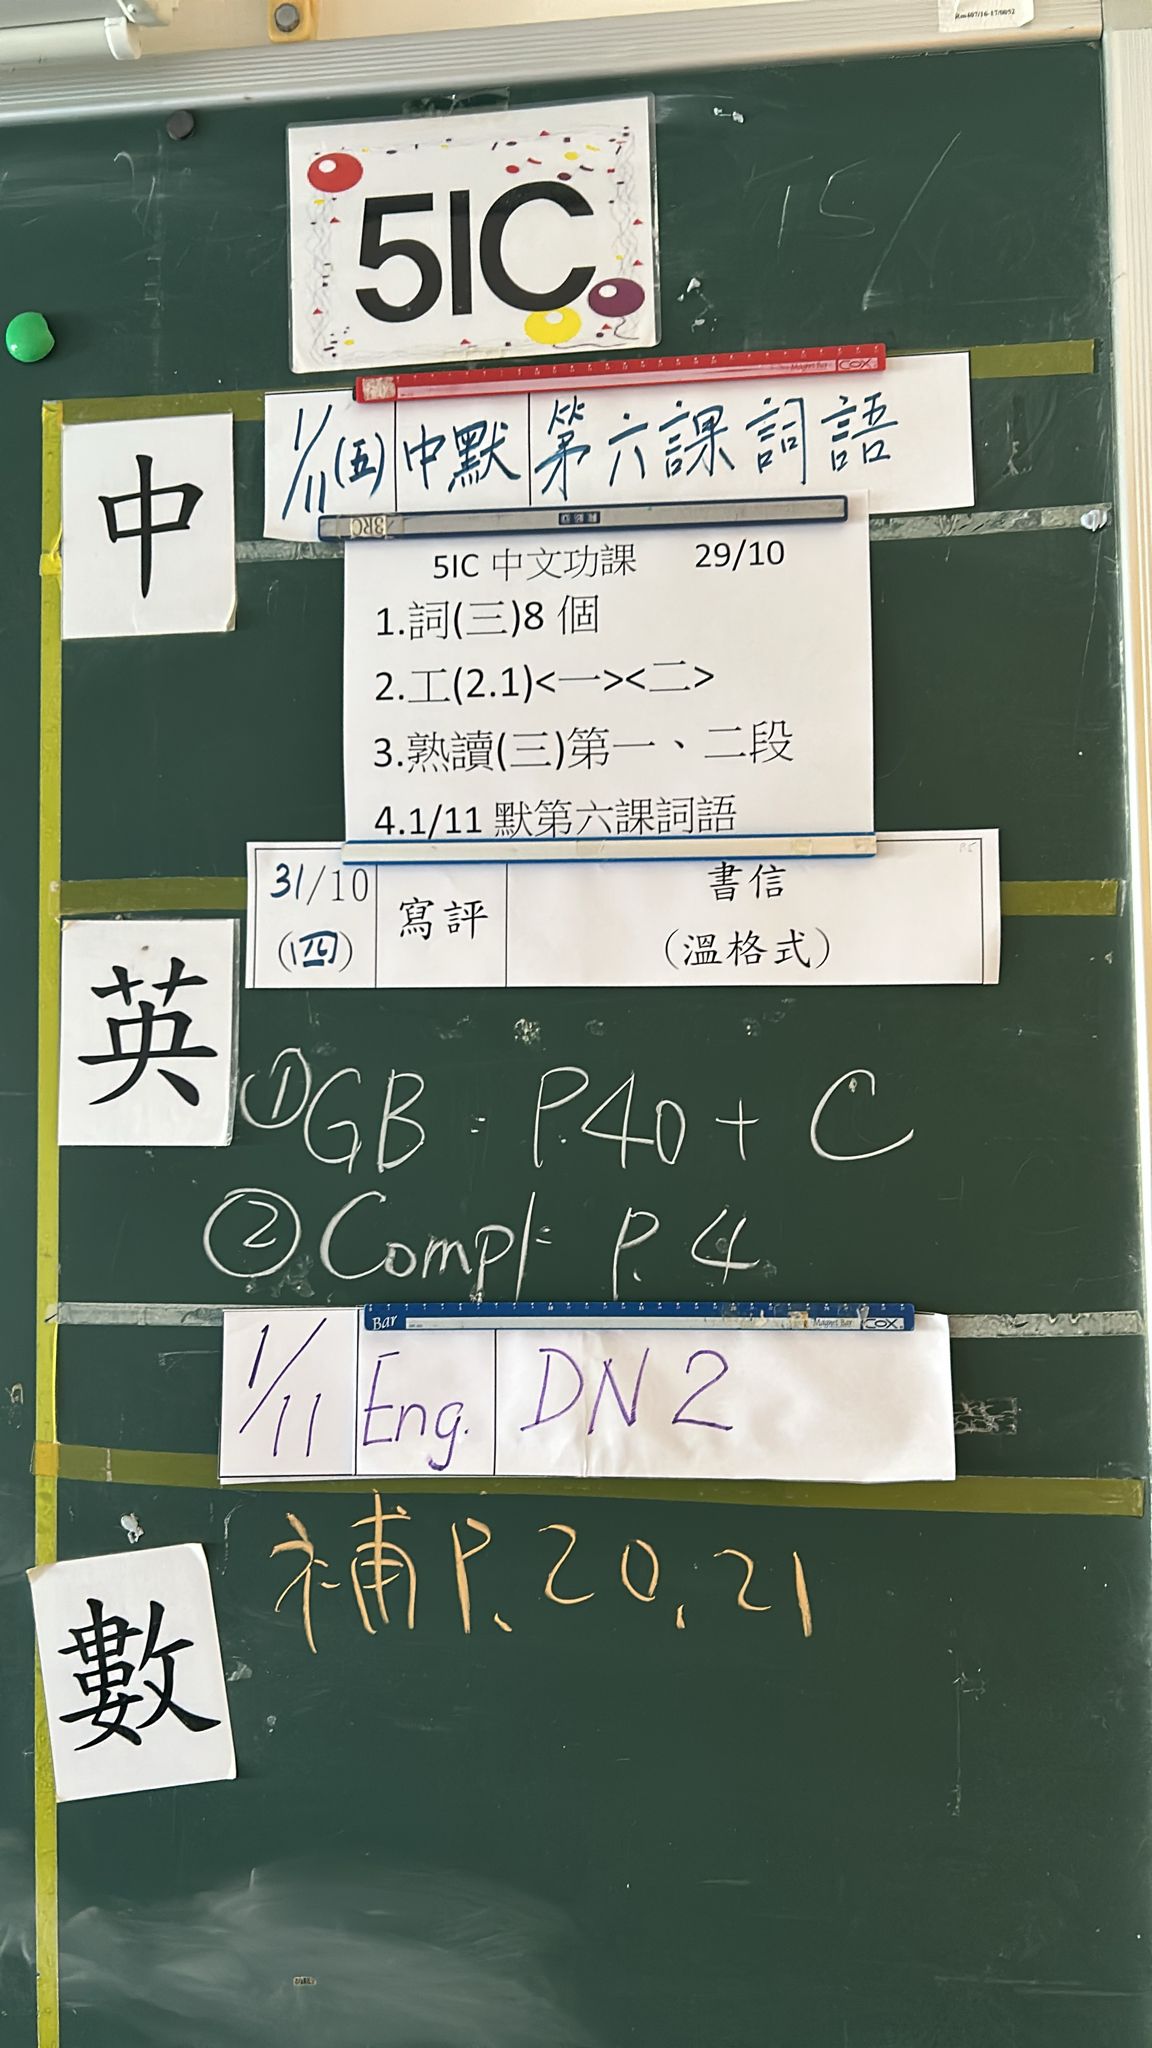 5IC
中
1/11(五) 中默 第六課詞語
5IC 中文功課 29/10
1.詞(三)8 個
2.工(2.1)<一><二>
3.熟讀(三)第一、二段
4.1/11 默第六課詞語
31/10 (四) 寫評 書信
(溫格式)
英
①GB: P.40 + C
②Compl: P.4
1/11 Eng. DN 2
數
補P.20, 21